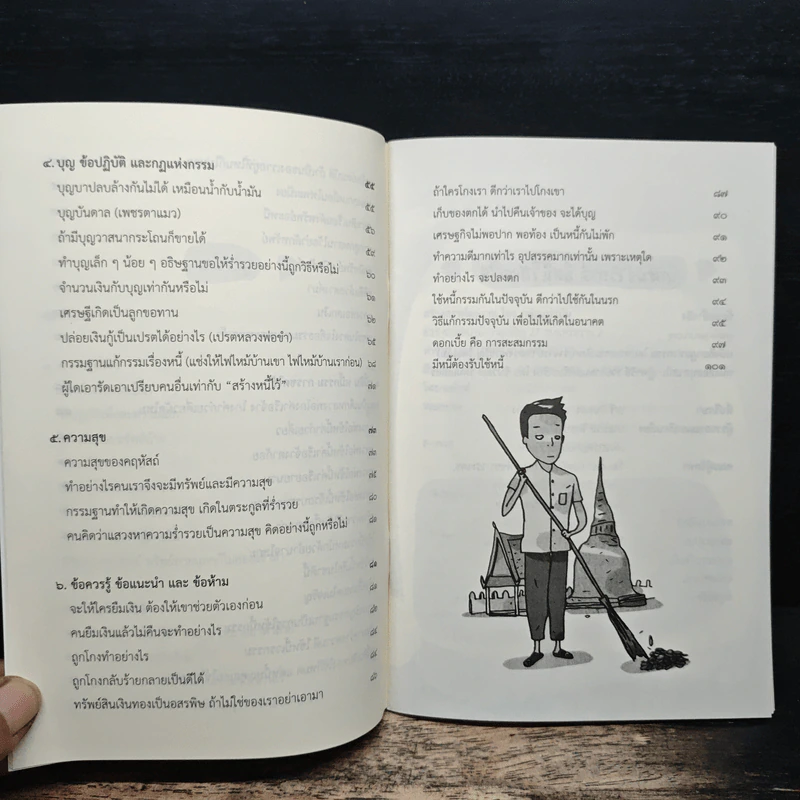 ๔. บุญ ข้อปฏิบัติ และกฎแห่งกรรม ๕๕
บุญบาปลบล้างกันไม่ได้ เหมือนน้ำกับน้ำมัน ๕๕
บุญบันดาล (เพชรตาแมว) ๕๖
ถ้ามีบุญวาสนากระโถนก็ขายได้ ๕๙
ทำบุญเล็ก ๆ น้อย ๆ อธิษฐานขอให้ร่ำรวยอย่างนี้ถูกวิธีหรือไม่ ๖๐
จำนวนเงินกับบุญเท่ากันหรือไม่ ๖๑
เศรษฐีเกิดเป็นลูกขอทาน ๖๒
ปล่อยเงินกู้เป็นเปรตได้อย่างไร (เปรตหลวงพ่อขำ) ๖๕
กรรมฐานแก้กรรมเรื่องหนี้ (แช่งให้ไฟไหม้บ้านเขา ไฟไหม้บ้านเราก่อน) ๖๘
ผู้ใดเอารัดเอาเปรียบคนอื่นเท่ากับ “สร้างหนี้ไว้” ๗๑
๕. ความสุข ๗๓
ความสุขของคฤหัสถ์ ๗๓
ทำอย่างไรคนเราจึงจะมีทรัพย์และมีความสุข ๗๕
กรรมฐานทำให้เกิดความสุข เกิดในตระกูลที่ร่ำรวย ๘๐
คนคิดว่าแสวงหาความร่ำรวยเป็นความสุข คิดอย่างนี้ถูกหรือไม่ ๘๑
๖. ข้อควรรู้ ข้อแนะนำ และ ข้อห้าม ๘๑
จะให้ใครยืมเงิน ต้องให้เขาช่วยตัวเองก่อน ๘๑
คนยืมเงินแล้วไม่คืนจะทำอย่างไร ๘๒
ถูกโกงทำอย่างไร ๘๔
ถูกโกงกลับร้ายกลายเป็นดีได้ ๘๕
ทรัพย์สินเงินทองเป็นอสรพิษ ถ้าไม่ใช่ของเราอย่าเอามา ๘๖
ถ้าใครโกงเรา ดีกว่าเราไปโกงเขา ๘๗
เก็บของตกได้ นำไปคืนเจ้าของ จะได้บุญ ๙๐
เศรษฐกิจไม่พอปาก พอท้อง เป็นหนี้กันไม่พัก ๙๑
ทำความดีมากเท่าไร อุปสรรคมากเท่านั้น เพราะเหตุใด ๙๒
ทำอย่างไร จะปลงตก ๙๓
ใช้หนี้กรรมกันในปัจจุบัน ดีกว่าไปใช้กันในนรก ๙๔
วิธีแก้กรรมปัจจุบัน เพื่อไม่ให้เกิดในอนาคต ๙๕
ดอกเบี้ย คือ การสะสมกรรม ๙๗
มีหนี้ต้องรับใช้หนี้ ๑๐๑